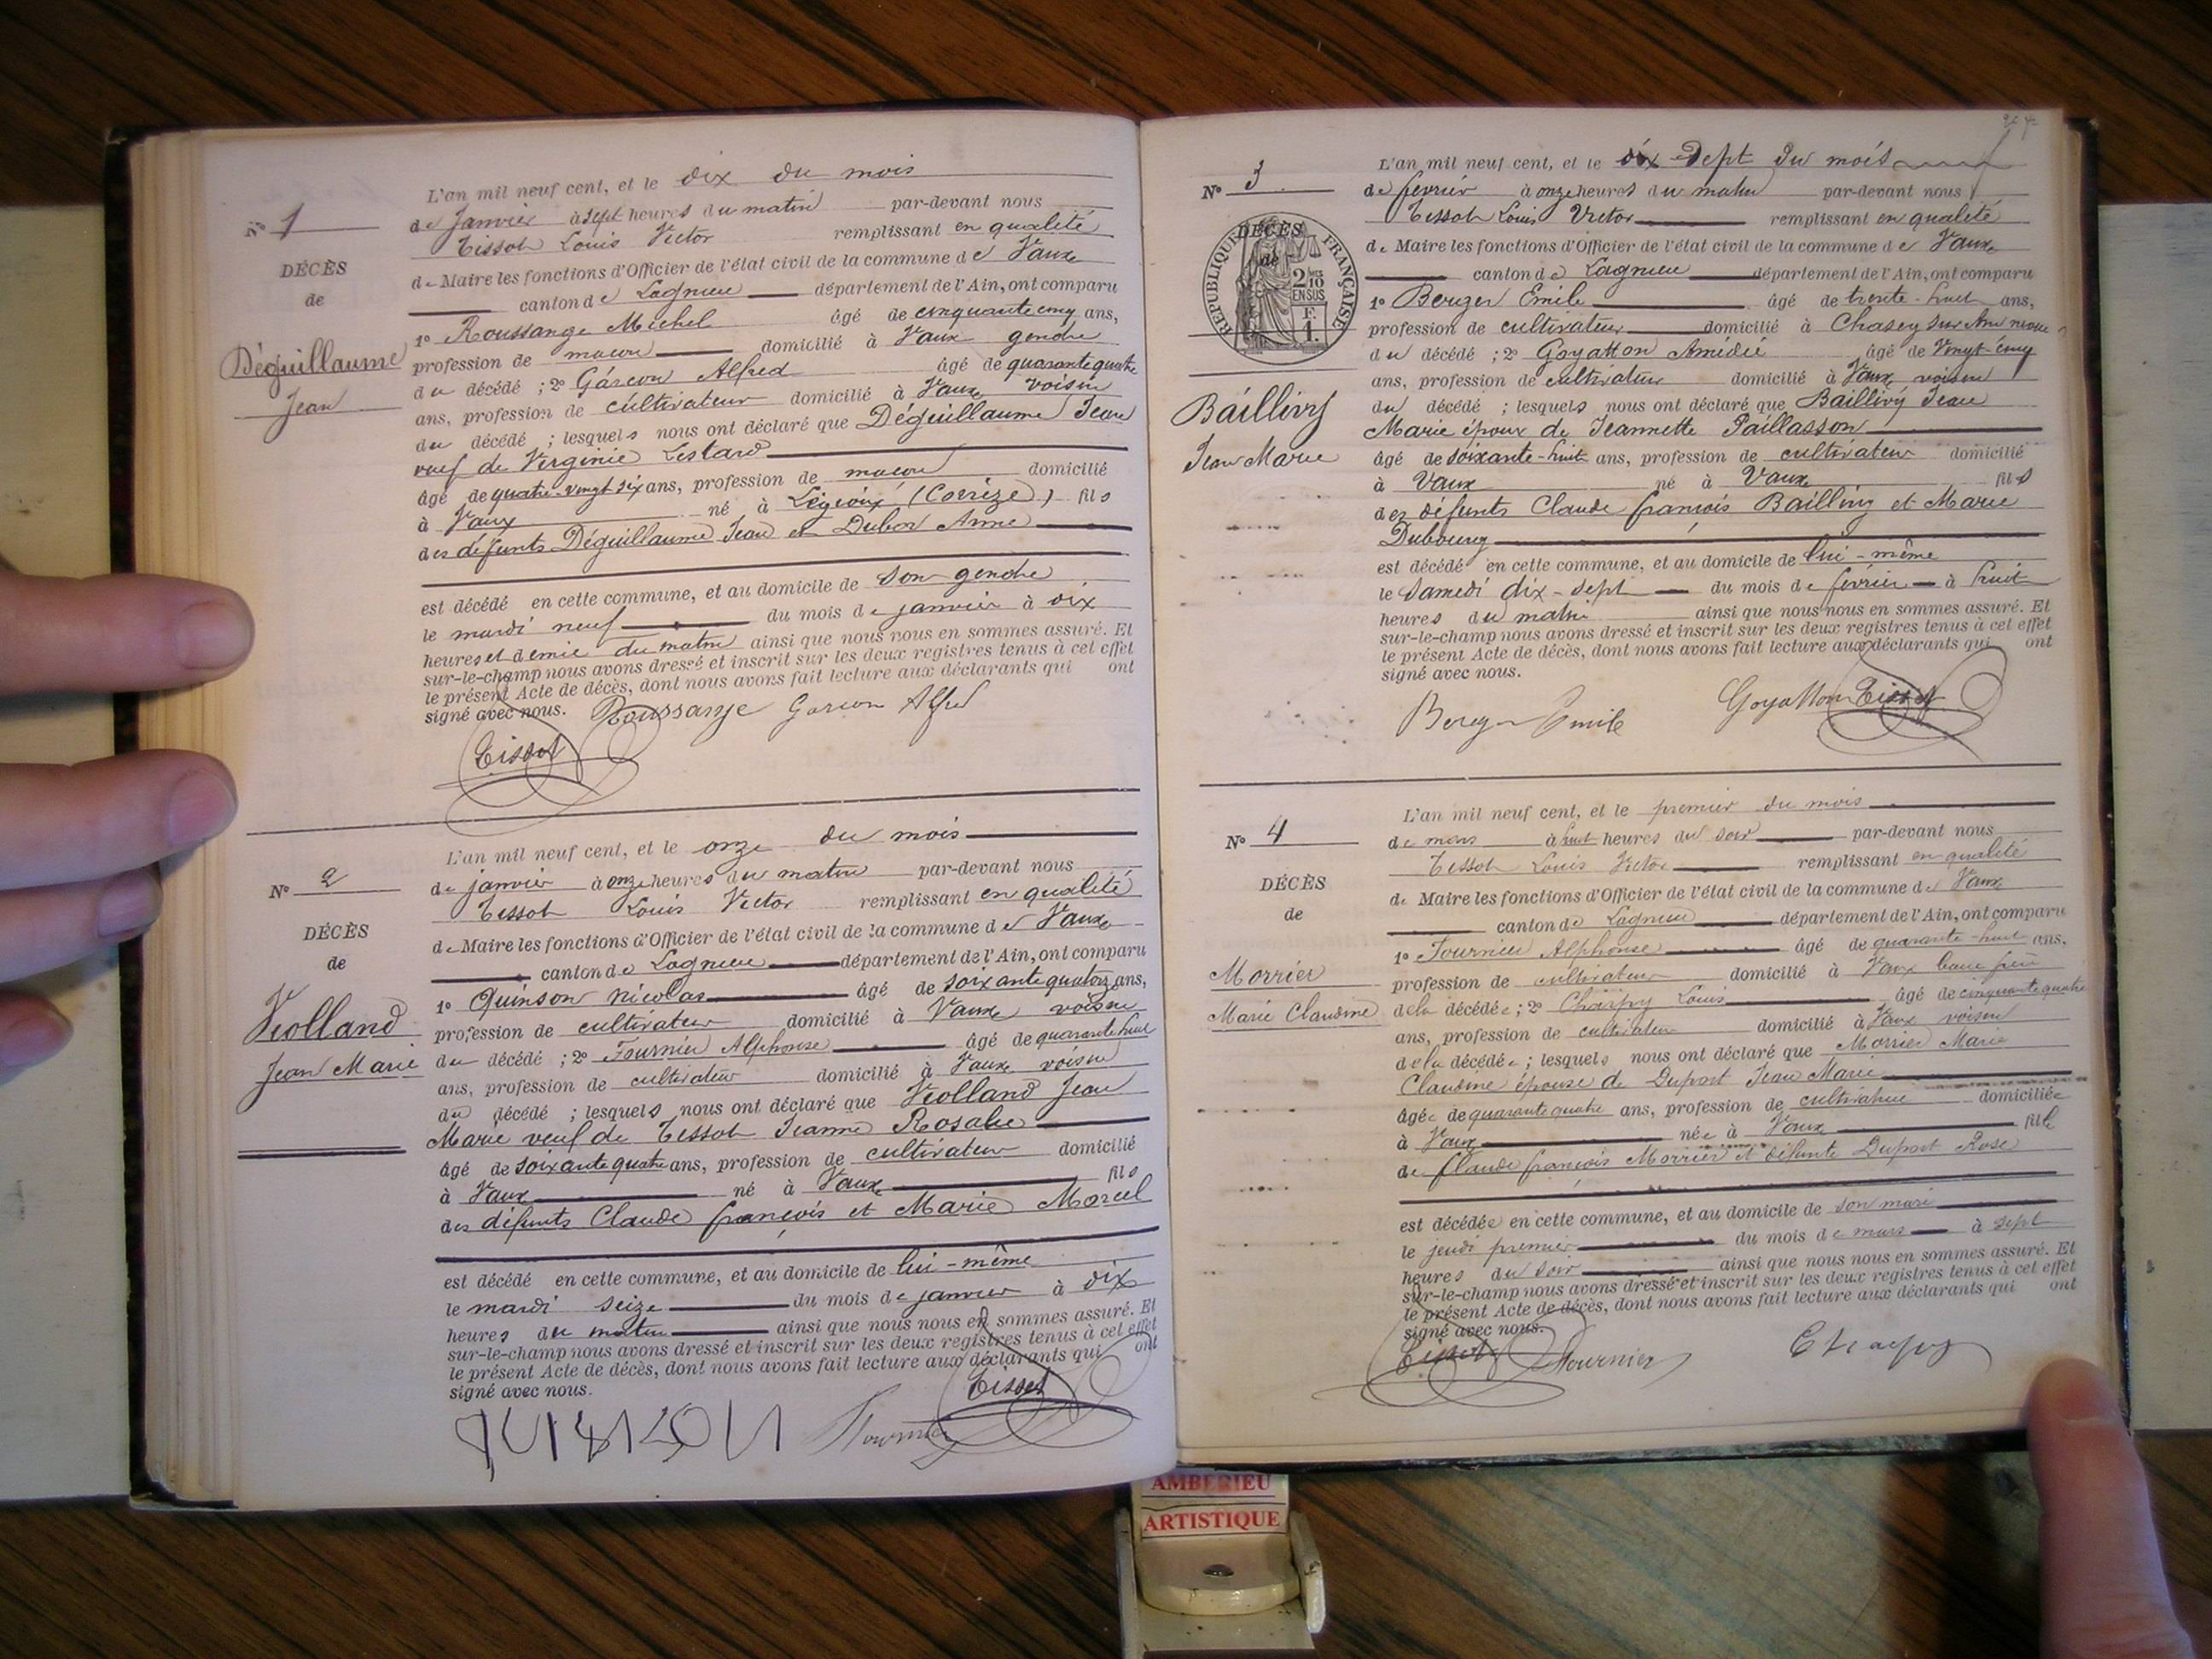 N° 1
DÉCÈS
de
Déguillaume
Jean
L'an mil neuf cent, et le dix du mois
de Janvier à sept heures du matin par-devant nous
Tissot Louis Victor remplissant en qualité
de Maire les fonctions d'Officier de l'état civil de la commune de Vaux
canton de Lagnieu département de l'Ain, ont comparu
1° Roussange Michel âgé de cinquante cinq ans,
profession de maçon domicilié à Vaux gendre
du décédé ; 2° Garcon Alfred âgé de quarante quatre
ans, profession de cultivateur domicilié à Vaux voisin
du décédé ; lesquels nous ont déclaré que Déguillaume Jean
veuf de Virginie Lestard
âgé de quatre-vingt six ans, profession de maçon domicilié
à Vaux né à (Corrèze) fils
des défunts Déguillaume Jean et Anne
est décédé en cette commune, et au domicile de son gendre
le mardi neuf du mois de janvier à dix
heures et demie du matin ainsi que nous nous en sommes assuré. Et
sur-le-champ nous avons dressé et inscrit sur les deux registres tenus à cet effet
le présent Acte de décès, dont nous avons fait lecture aux déclarants qui ont
signé avec nous. Roussange Garcon Alfred
Tissot
N° 2
DÉCÈS
de
Violland
Jean Marie
L'an mil neuf cent, et le onze du mois
de janvier à onze heures du matin par-devant nous
Tissot Louis Victor remplissant en qualité
de Maire les fonctions d'Officier de l'état civil de la commune de Vaux
canton de Lagnieu département de l'Ain, ont comparu
1° Quinson Nicolas âgé de soixante quatorze ans,
profession de cultivateur domicilié à Vaux voisin
du décédé ; 2° Fournier Alphonse âgé de quarante huit
ans, profession de cultivateur domicilié à Vaux voisin
du décédé ; lesquels nous ont déclaré que Violland Jean
Marie veuf de Tissot Jeanne Rosalie
âgé de soixante quatre ans, profession de cultivateur domicilié
à Vaux né à Vaux fils
des défunts Claude françois et Marie Marcel
est décédé en cette commune, et au domicile de lui-même
le mardi seize du mois de janvier à dix
heures du matin ainsi que nous nous en sommes assuré. Et
sur-le-champ nous avons dressé et inscrit sur les deux registres tenus à cet effet
le présent Acte de décès, dont nous avons fait lecture aux déclarants qui ont
signé avec nous. Tissot
Fournier
N° 3
RÉPUBLIQUE FRANÇAISE
2/10 EN SUS
F. 1.
DÉCÈS
de
Baillivy
Jean Marie
L'an mil neuf cent, et le dix Sept du mois
de février à onze heures du matin par-devant nous
Tissot Louis Victor remplissant en qualité
de Maire les fonctions d'Officier de l'état civil de la commune de Vaux
canton de Lagnieu département de l'Ain, ont comparu
1° Berger Emile âgé de trente-huit ans,
profession de cultivateur domicilié à Chazey sur Ain neveu
du décédé ; 2° Goyatton Amédié âgé de Vingt-cinq
ans, profession de cultivateur domicilié à Vaux voisin
du décédé ; lesquels nous ont déclaré que Baillivy Jean
Marie époux de Jeannette Paillasson
âgé de soixante-huit ans, profession de cultivateur domicilié
à Vaux né à Vaux fils
des défunts Claude françois Baillivy et Marie
Dubourg
est décédé en cette commune, et au domicile de lui-même
le Samedi dix-sept du mois de février à huit
heures du matin ainsi que nous nous en sommes assuré. Et
sur-le-champ nous avons dressé et inscrit sur les deux registres tenus à cet effet
le présent Acte de décès, dont nous avons fait lecture aux déclarants qui ont
signé avec nous.
Berger Emile Goyatton Tissot
N° 4
DÉCÈS
de
Morrier
Marie Claudine
L'an mil neuf cent, et le premier du mois
de mars à huit heures du soir par-devant nous
Tissot Louis Victor remplissant en qualité
de Maire les fonctions d'Officier de l'état civil de la commune de Vaux
canton de Lagnieu département de l'Ain, ont comparu
1° Fournier Alphonse âgé de quarante-huit ans,
profession de cultivateur domicilié à Vaux beau frère
de la décédée ; 2° Charpy Louis âgé de cinquante quatre
ans, profession de cultivateur domicilié à Vaux voisin
de la décédée ; lesquels nous ont déclaré que Morrier Marie
Claudine épouse de Duport Jean Marie
âgée de quarante quatre ans, profession de cultivatrice domiciliée
à Vaux née à Vaux fille
de Claude françois Morrier et défunte Duport Rose
est décédée en cette commune, et au domicile de son mari
le jeudi premier du mois de mars à sept
heures du soir ainsi que nous nous en sommes assuré. Et
sur-le-champ nous avons dressé et inscrit sur les deux registres tenus à cet effet
le présent Acte de décès, dont nous avons fait lecture aux déclarants qui ont
signé avec nous.
Tissot Fournier Charpy
AMBERIEU
ARTISTIQUE